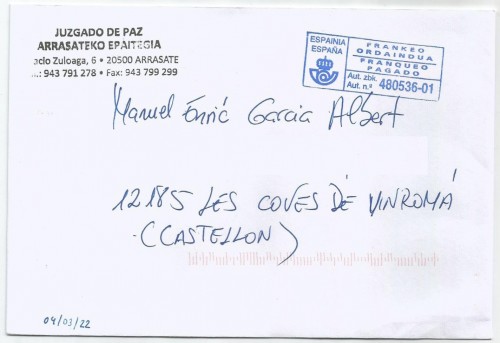 JUZGADO DE PAZ
ARRASATEKO EPAITEGIA
Zuloaga, 6 • 20500 ARRASATE
.: 943 791 278 • Fax: 943 799 299
ESPAINIA
ESPAÑA
FRANKEO
ORDAINDUA
FRANQUEO
PAGADO
Aut. zbk.
Aut. n.º 480536-01
Manuel Enric Garcia Albert
12185 LES COVES DE VINROMÁ
(CASTELLON)
04/03/22